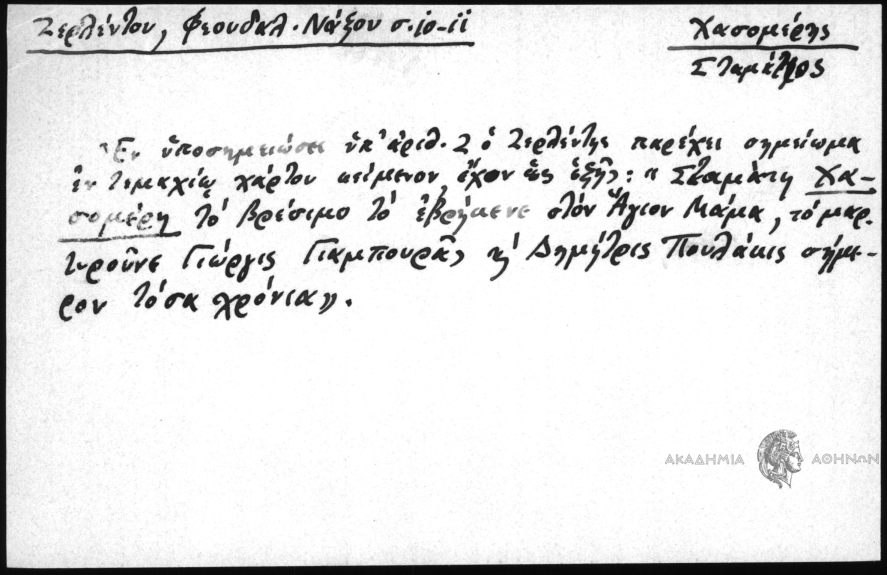 Ζερλέντου, Φεουδαλ. Νάξου σ. ιο-ιϊ
Χασομέρης
Σταμάτιος
Ἐν ὑποσημειώσει ὑπ' ἀριθ. 2 ὁ Ζερλέντης παρέχει σημείωμα
ἐν τεμαχίῳ χάρτου κείμενον, ἔχον ὡς ἑξῆς: « Σταμάτη Χα-
σομέρη τὸ βρέσιμο τὸ ἐβρήκενε στὸν Ἅγιον Μάμα, τὸ μαρ-
τυροῦνε Γιώργις Γιαμπουρᾶς κι' Δημήτρις Πουλάκις σήμε-
ρον τόσα χρόνια».
ΑΚΑΔΗΜΙΑ ΑΘΗΝΩΝ